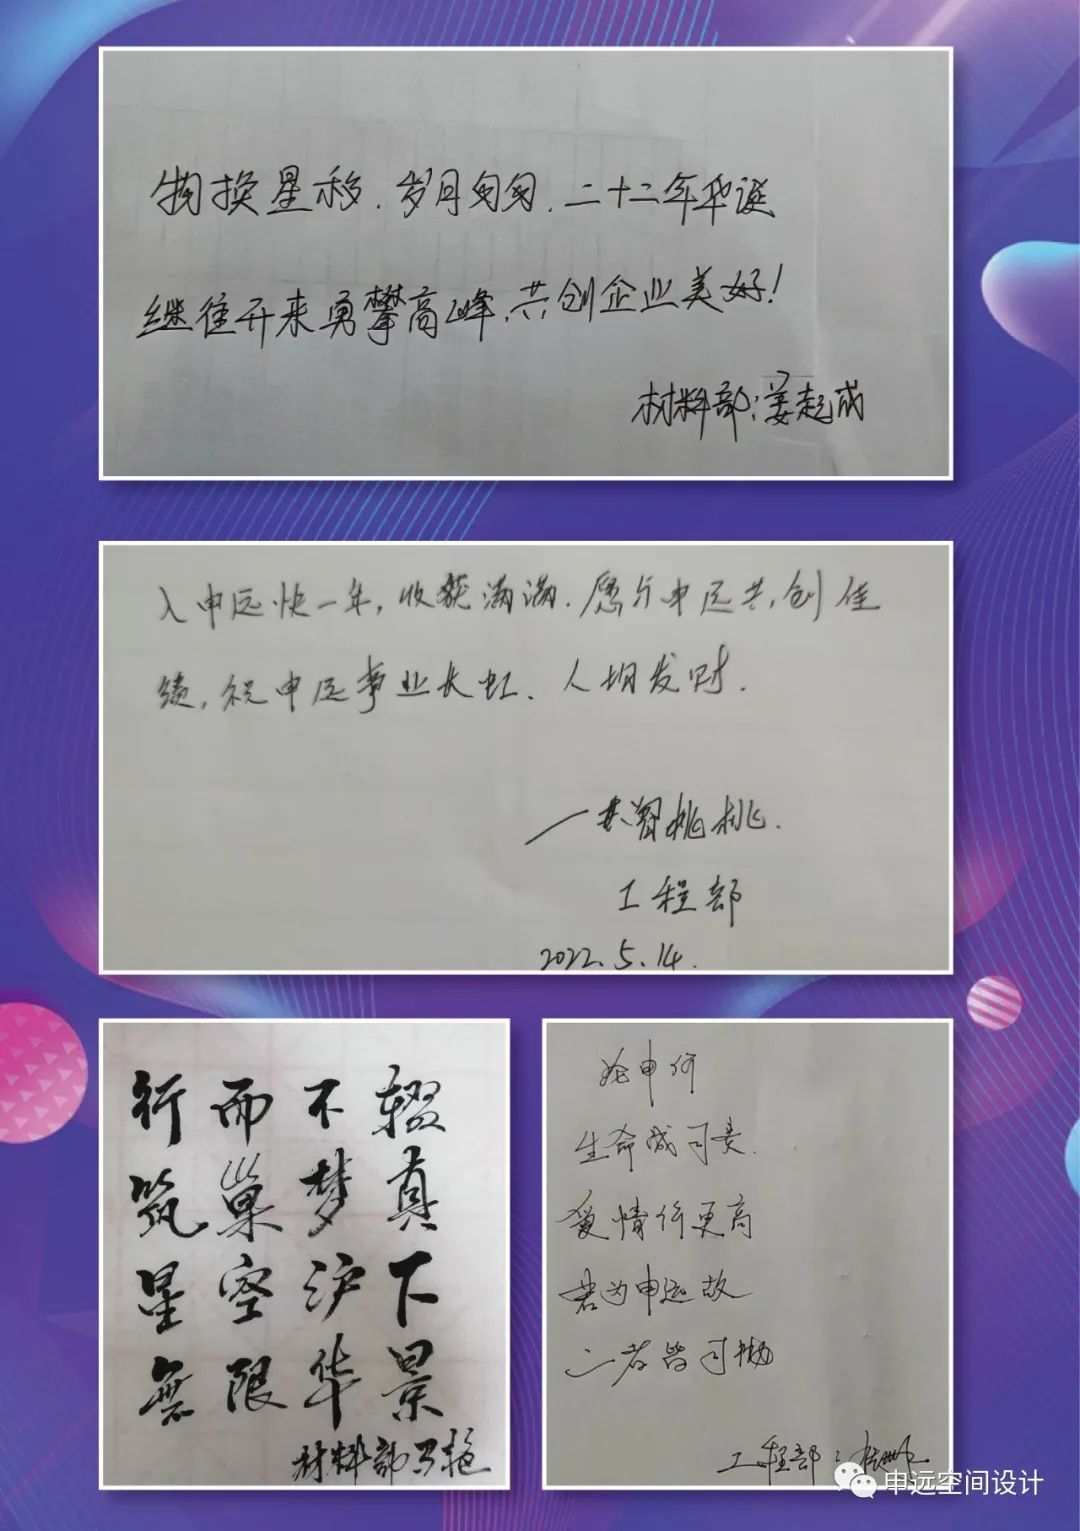 物换星移.岁月匆匆.二十二年华诞
继往开来勇攀高峰.共创企业美好!
材料部:姜起成
入申远快一年,收获满满.愿与申远共创佳
绩,祝申远事业长虹、人均发财.
桃桃.
工程部
2022.5.14.
行而不辍
筑巢梦真
星空沪下
無限华景
材料部
生命诚可贵.
爱情价更高
若为申远故
二者皆可抛
工程部:
申远空间设计